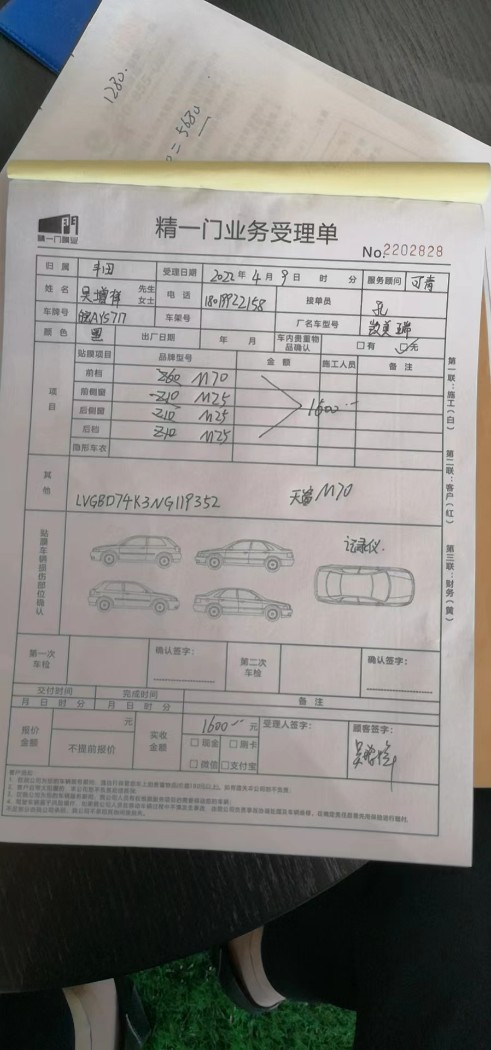 1280.
= 5680
精一门膜业
精一门业务受理单
No.2202828
归属 丰田 受理日期 2022年4月9日 时 分 服务顾问
姓名 先生 女士 电话 18019922158 接单员 孔
车牌号 皖AY5717 车架号 厂名车型号 凯美瑞
颜色 黑 出厂日期 年 月 车内贵重物品确认 □有 □无
项目 贴膜项目 品牌型号 金额 施工人员 备注
前档 Z60 M70
前侧窗 Z10 M25
1600
后侧窗 Z10 M25
后档 Z10 M25
隐形车衣
其他 LVGBD74K3NG119352 天窗 M70
贴膜车辆损伤部位确认
记录仪.
第一次车检 确认签字: 第二次车检 确认签字:
交付时间 完成时间 备注
月 日 时 分 月 日 时 分
报价金额 元 不提前报价 实收金额 1600 元 受理人签字: 顾客签字:
□现金 □刷卡
□微信 □支付宝
第一联:施工(白)
第二联:客户(红)
第三联:财务(黄)